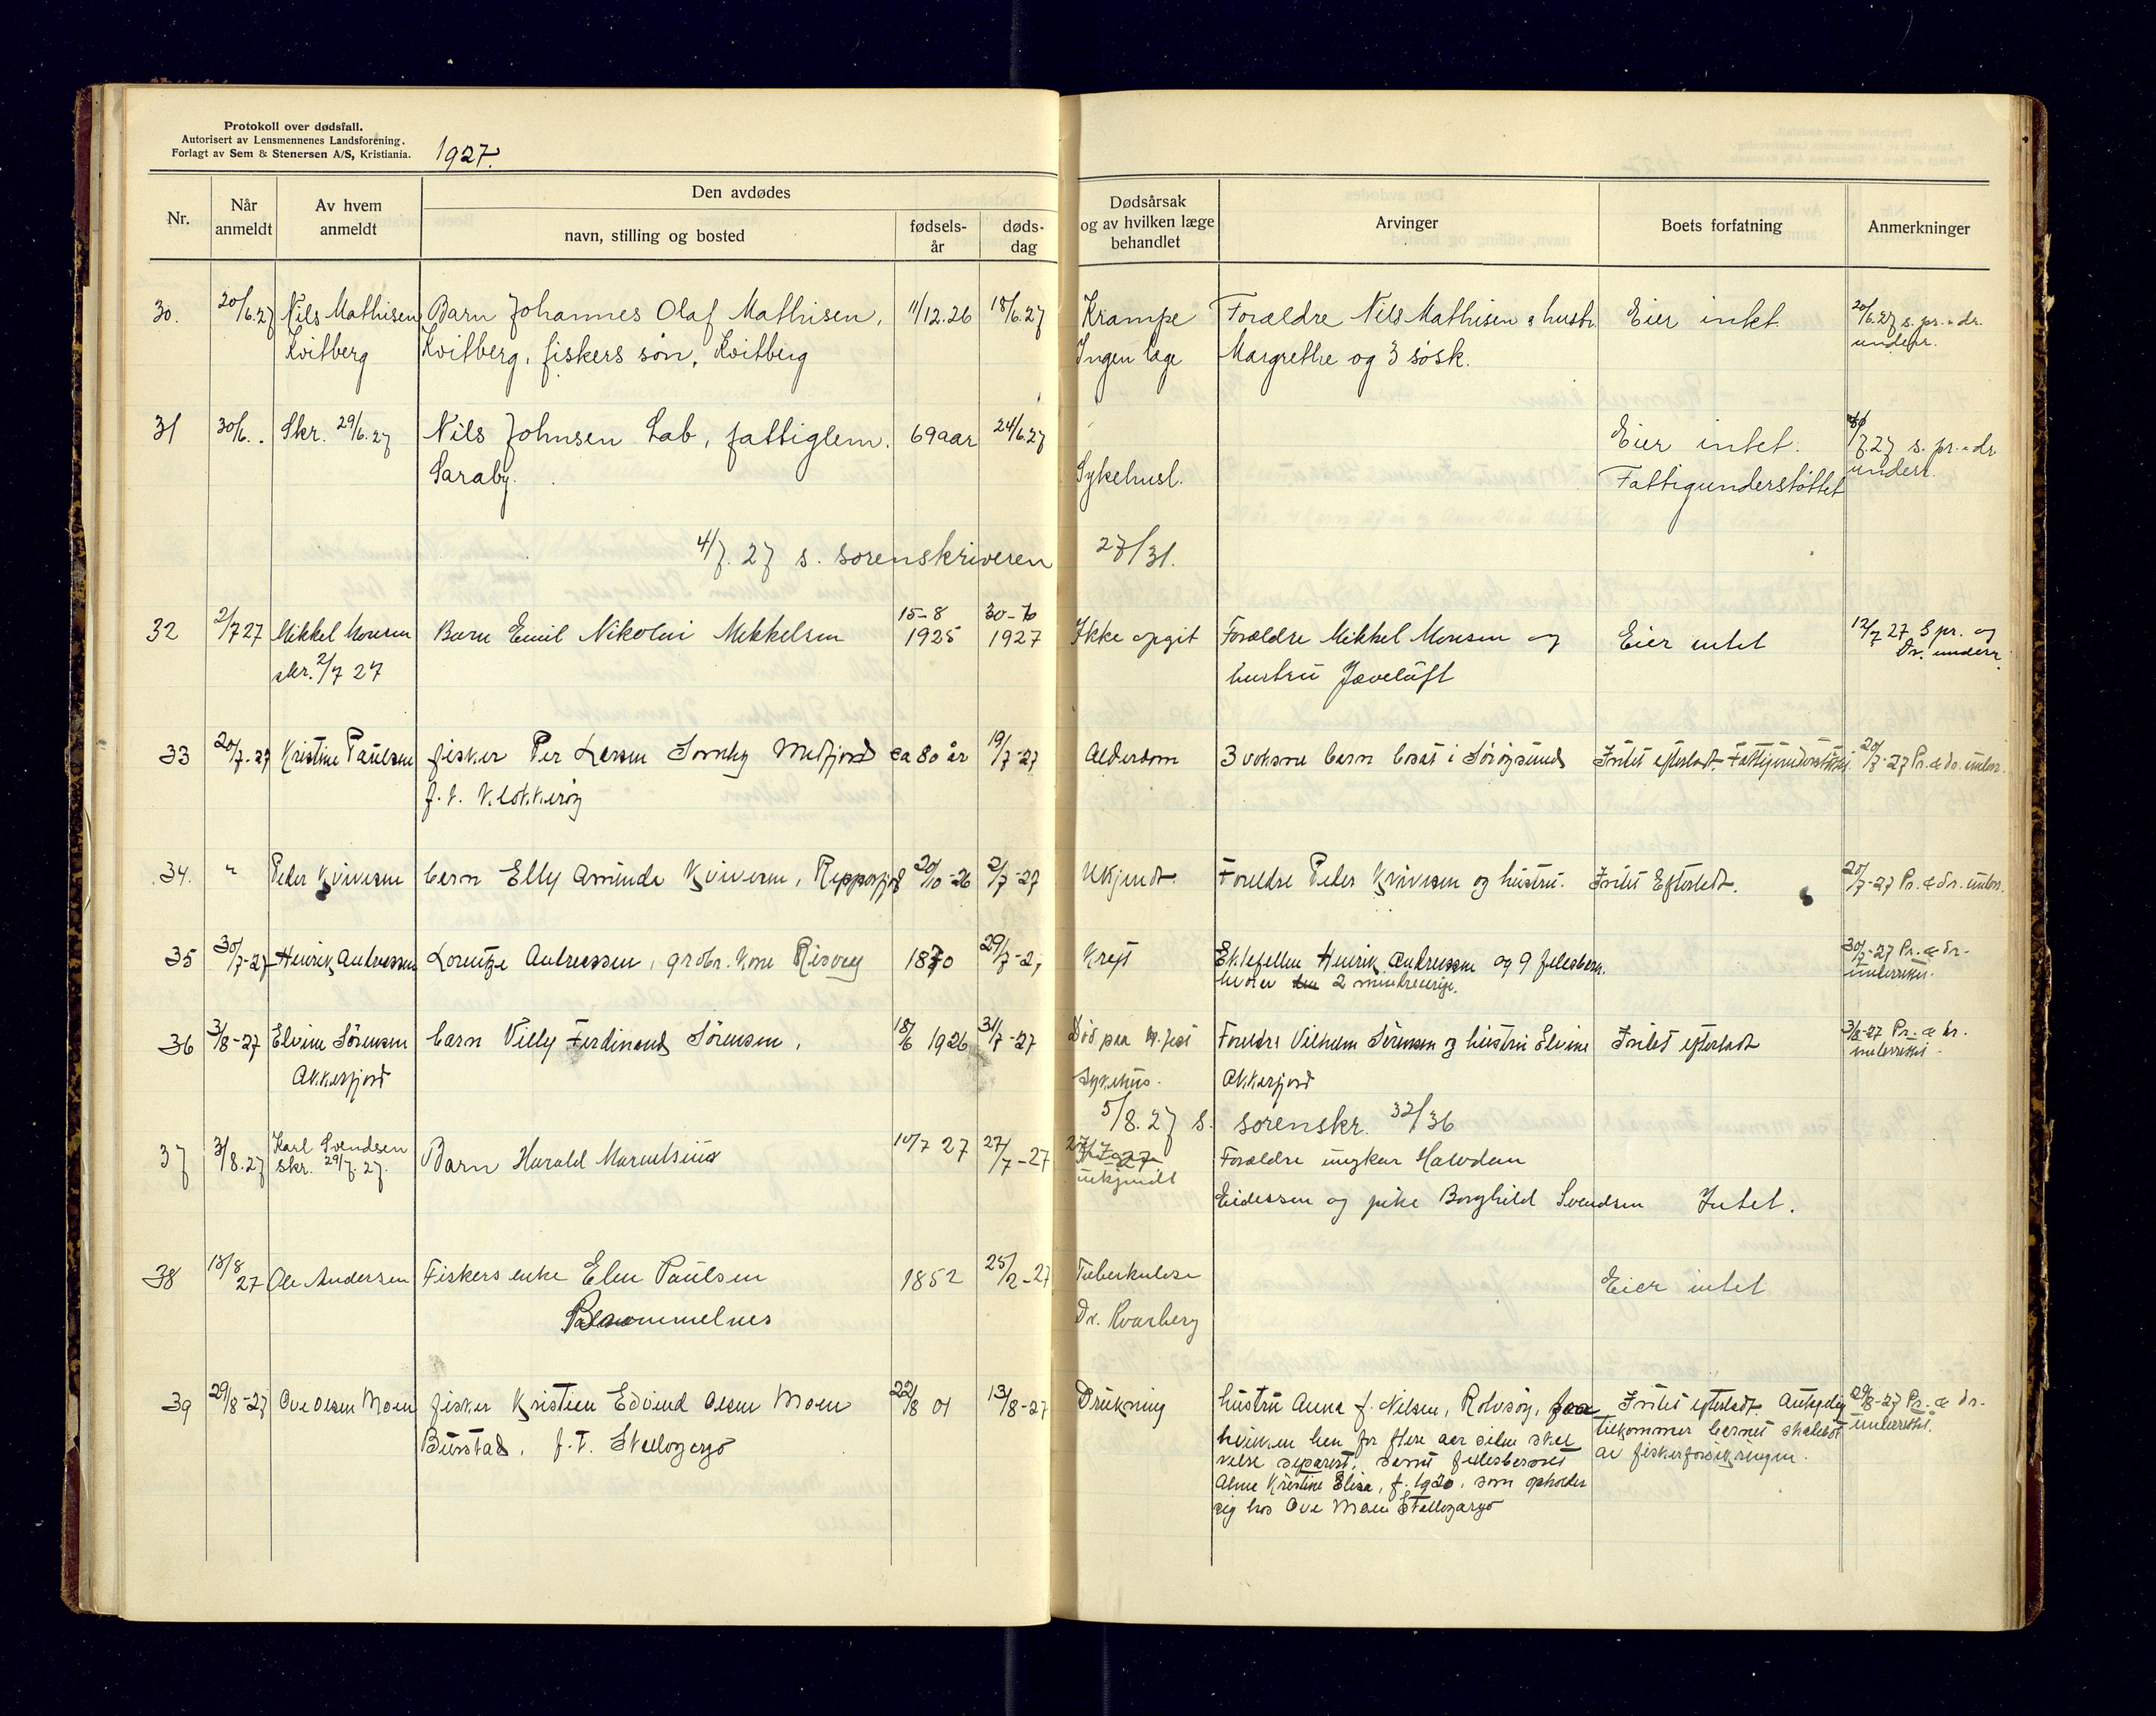 Protokoll over dødsfall.
Autorisert av Lensmennenes Landsforening.
Forlagt av Sem & Stenersen A/S, Kristiania.
1927.
Nr.
Når anmeldt
Av hvem anmeldt
Den avdødes
navn, stilling og bosted
fødsels-år
døds-dag
Dødsårsak og av hvilken læge behandlet
Arvinger
Boets forfatning
Anmerkninger
30. 20/6.27 Nils Mathisen Barn Johannes Olaf Mathisen, 11/12.26 18/6.27 Krampe Forældre Nils Mathisen & hustr. Eier intet 20/6.27 s. pr. & dr.
Kvitberg Kvitberg, fiskers søn, Kvitberg Ingen læge Margrethe og 3 søsk. underr.
31 30/6. Skr. 29/6.27 Nils Johnsen Sab, fattiglem. 69 aar 24/6.27 Eier intet. /7.27 s. pr. & dr.
Saraby. Sykehusl. Fattigunderstøttet underr.
4/7.27 s. sorenskriveren 27/31.
32 2/7 27 Mikkel Monsen Barn Emil Nikolai Mikkelsen 15-8 1925 30-6 1927 Ikke opgit Forældre Mikkel Monsen og Eier intet 12/7 27 S pr. og
skr. 2/7 27 hustru Javeluft Dr. underr.
33 20/7-27 Kristine Paulsen fisker Per Larsen Sornby Medfjord ca 80 år 19/7-27 Alderdom 3 voksne barn bosat i Sørøysund Intet efterladt. Fattigunderstøttet 20/7-27 Pr. & dr. underr.
f. t. Klokkerøy
34. " Peder Kvivesen barn Elly Aminda Kvivesen, Repparfjord 20/10-26 2/7-27 Ukjendt. Foreldre Peder Kvivesen og hustru. Intet Efterladt. 20/7-27 Pr. & dr. underr.
35 30/7-27 Henrik Andreassen Lorentze Andreassen, grdbr. kone Risvåg 1870 29/7-27 Kreft Ektefellen Henrik Andreassen og 9 fellesbarn. 30/7-27 Pr. & dr.
hvorav 2 mindreårige. underrettet.
36 3/8-27 Elvine Sørensen barn Villy Ferdinand Sørensen, 18/6 1926 31/7-27 Død paa H.fest Foreldre Vilhelm Sørensen og hustru Elvine Intet efterladt 3/8-27 Pr. & dr.
Akkarfjord sykehus. Akkarfjord underrettet.
5/8.27 s. sorenskr. 32/36
37 3/8.27 Karl Svendsen Barn Harald Marentsius 10/7 27 27/7-27 Forældre ungkar Halvdan
skr. 29/7.27. ukjendt
Eidessen og pike Borghild Svendsen Intet.
38 18/8 27 Ole Andersen Fiskers enke Elen Paulsen 1852 25/2-27 Tuberkulose Eier intet
Dr. Kvarberg
39 29/8-27 Ove Olsen Moen fisker Kristian Edvind Olsen Moen 22/8 01 13/8-27 Drukning hustru Anna f. Nilsen, Rolvsøy, Intet efterladt. Antagelig 29/8-27 Pr. & dr.
Burstad, f. t. Stallogargo hvilken han for flere aar siden tilkommer barnet underrettet.
separert, samt fellesbarnet av fiskerforsikringen.
Alma Kristine Elisa, f. 1920, som opholder
sig hos Ove Moen Stallogargo